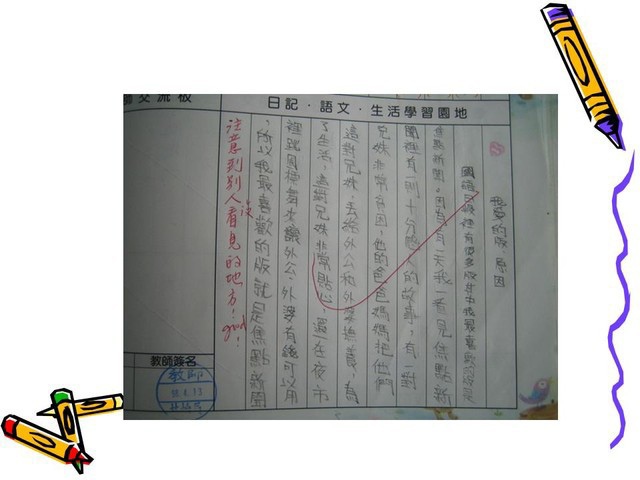 師交流板
日記·語文·生活學習園地
我愛的版、原因
國語日報裡有很多版其中我最喜歡的版是
焦點新聞,因為有一天我一看見焦點新
聞裡有一則十分感人的故事,有一對
兄妹非常貧困,他的爸爸媽媽把他們
這對兄妹,丟給外公和外婆撫養,為
了生活,這對兄妹非常貼心,還在夜市
裡跳國標舞,讓外公、外婆有錢可以用
,所以我最喜歡的版就是焦點新聞
注意到別人沒看見的地方!good!
教師簽名
教師